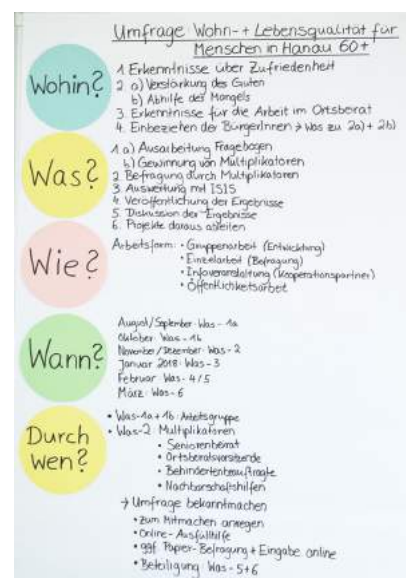 Umfrage Wohn-+ Lebensqualität für
Menschen in Hanau 60+
Wohin?
1. Erkenntnisse über Zufriedenheit
2 a) Verstärkung des Guten
b) Abhilfe des Mangels
3. Erkenntnisse für die Arbeit im Ortsbeirat
4. Einbeziehen der BürgerInnen → Was zu 2a)+2b)
Was?
1. a) Ausarbeitung Fragebogen
b) Gewinnung von Multiplikatoren
2. Befragung durch Multiplikatoren
3. Auswertung mit ISIS
4. Veröffentlichung der Ergebnisse
5. Diskussion der Ergebnisse
6. Projekte daraus ableiten
Wie?
Arbeitsform: • Gruppenarbeit (Entwicklung)
• Einzelarbeit (Befragung)
• Infoveranstaltung (Kooperationspartner)
• Öffentlichkeitsarbeit
Wann?
August/September: Was - 1a
Oktober: Was - 1b
November/Dezember: Was - 2
Januar 2018: Was - 3
Februar Was - 4/5
März: Was - 6
Durch
wen?
• Was-1a+1b: Arbeitsgruppe
• Was-2: Multiplikatoren
• Seniorenbeirat
• Ortsbeiratsvorsitzende
• Behindertenbeauftragte
• Nachbarschaftshilfen
→ Umfrage bekanntmachen
• zum Mitmachen anregen
• Online-Ausfüllhilfe
• ggf. Papier-Befragung + Eingabe online
• Beteiligung: Was-5+6